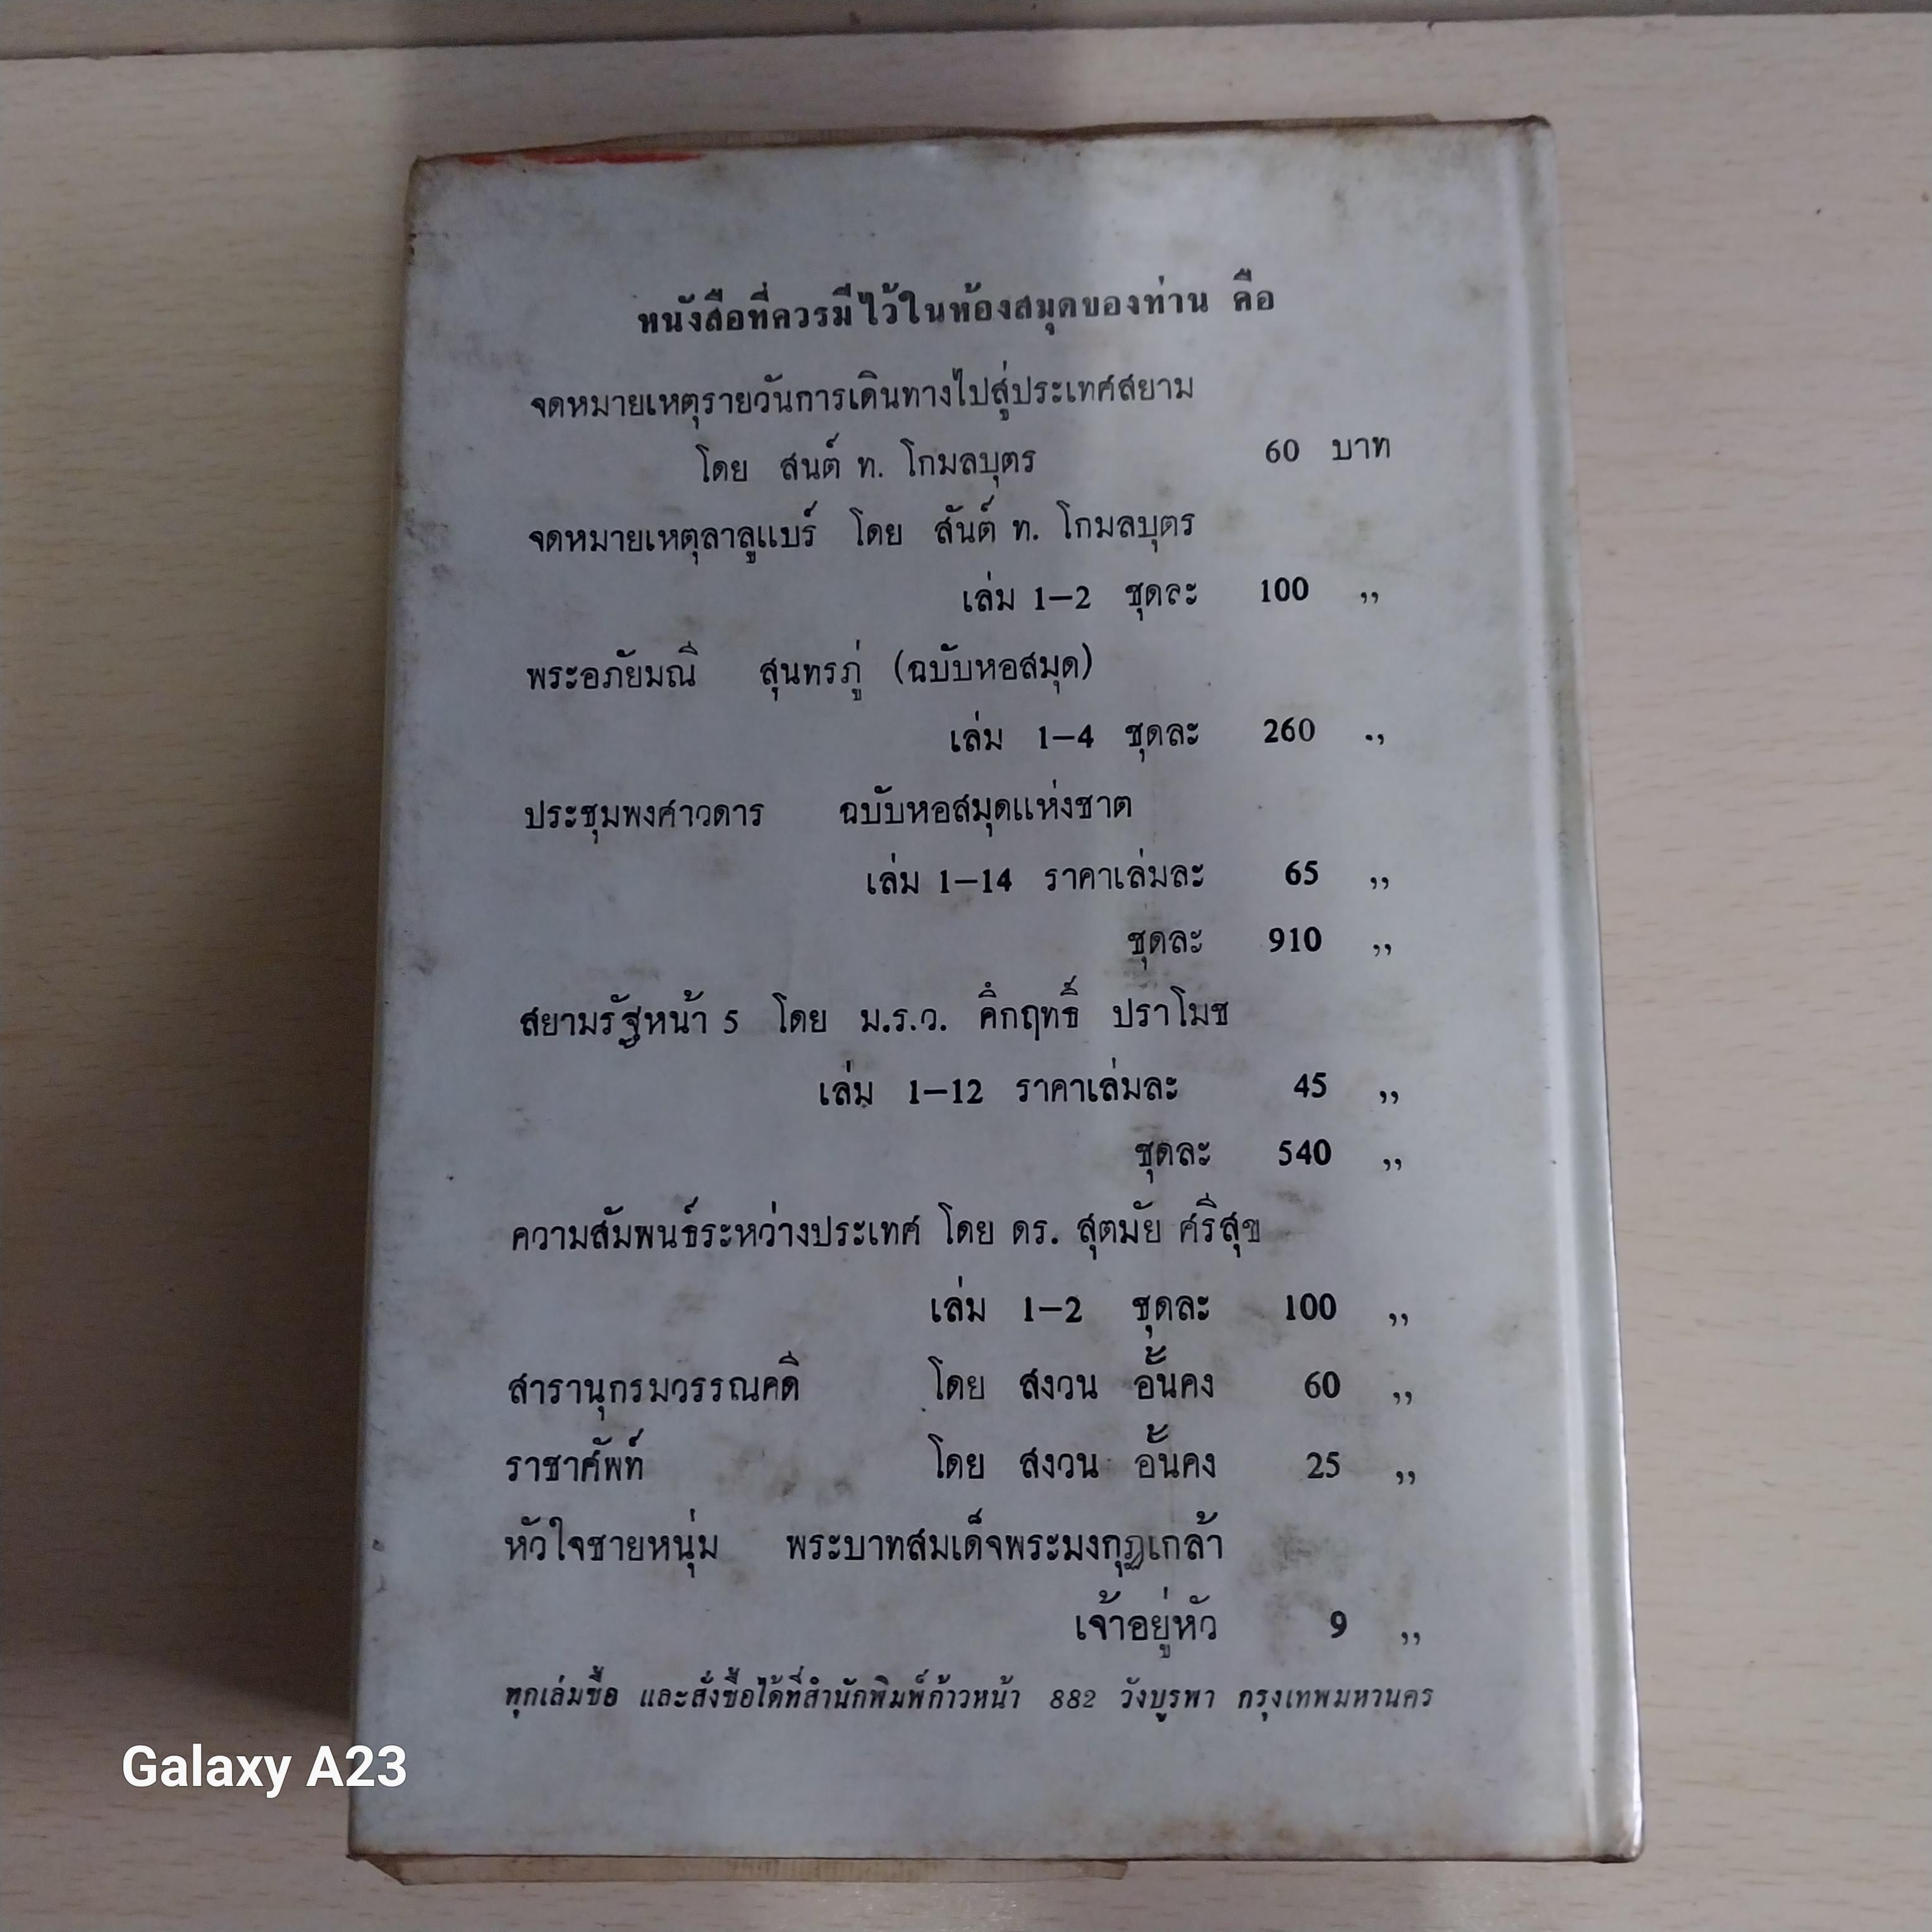 หนังสือที่ควรมีไว้ในห้องสมุดของท่าน คือ
จดหมายเหตุรายวันการเดินทางไปสู่ประเทศสยาม
โดย สนต์ ท. โกมลบุตร 60 บาท
จดหมายเหตุลาลูแบร์ โดย สันต์ ท. โกมลบุตร
เล่ม 1–2 ชุดละ 100 ,,
พระอภัยมณี สุนทรภู่ (ฉบับหอสมุด)
เล่ม 1–4 ชุดละ 260 ,,
ประชุมพงศาวดาร ฉบับหอสมุดแห่งชาต
เล่ม 1–14 ราคาเล่มละ 65 ,,
ชุดละ 910 ,,
สยามรัฐหน้า 5 โดย ม.ร.ว. คึกฤทธิ์ ปราโมช
เล่ม 1–12 ราคาเล่มละ 45 ,,
ชุดละ 540 ,,
ความสัมพนธ์ระหว่างประเทศ โดย ดร. สุตมัย ศรีสุข
เล่ม 1–2 ชุดละ 100 ,,
สารานุกรมวรรณคดี โดย สงวน อั้นคง 60 ,,
ราชาศัพท์ โดย สงวน อั้นคง 25 ,,
หัวใจชายหนุ่ม พระบาทสมเด็จพระมงกุฎเกล้า
เจ้าอยู่หัว 9 ,,
ทุกเล่มซื้อ และสั่งซื้อได้ที่สำนักพิมพ์ก้าวหน้า 882 วังบูรพา กรุงเทพมหานคร
Galaxy A23